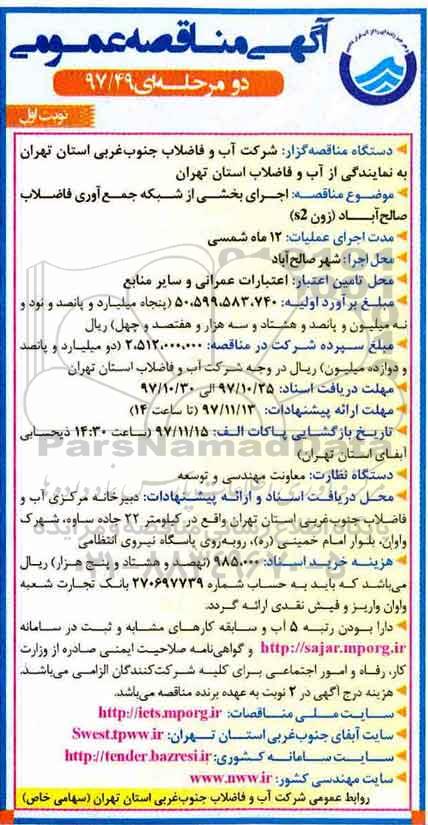 آگهی مناقصه عمومی
دو مرحله‌ای ۹۷/۴۹
نوبت اول
دستگاه مناقصه‌گزار: شرکت آب و فاضلاب جنوب‌غربی استان تهران
به نمایندگی از آب و فاضلاب استان تهران
موضوع مناقصه: اجرای بخشی از شبکه جمع‌آوری فاضلاب
صالح‌آباد (زون s2)
مدت اجرای عملیات: ۱۲ ماه شمسی
محل اجرا: شهر صالح‌آباد
محل تامین اعتبار: اعتبارات عمرانی و سایر منابع
مبلغ برآورد اولیه: ۵۰،۵۹۹،۵۸۳،۷۴۰ (پنجاه میلیارد و پانصد و نود و
نه میلیون و پانصد و هشتاد و سه هزار و هفتصد و چهل) ریال
مبلغ سپرده شرکت در مناقصه: ۲،۵۱۲،۰۰۰،۰۰۰ (دو میلیارد و پانصد
و دوازده میلیون) ریال در وجه شرکت آب و فاضلاب استان تهران
مهلت دریافت اسناد: ۹۷/۱۰/۲۵ الی ۹۷/۱۰/۳۰
مهلت ارائه پیشنهادات: ۹۷/۱۱/۱۳ (تا ساعت ۱۴)
تاریخ بازگشایی پاکات الف: ۹۷/۱۱/۱۵ (ساعت ۱۴:۳۰ ذیحسابی
آبفای استان تهران)
دستگاه نظارت: معاونت مهندسی و توسعه
محل دریافت اسناد و ارائه پیشنهادات: دبیرخانه مرکزی آب و
فاضلاب جنوب‌غربی استان تهران واقع در کیلومتر ۲۳ جاده ساوه، شهرک
واوان، بلوار امام خمینی (ره)، روبه‌روی پاسگاه نیروی انتظامی
هزینه خرید اسناد: ۹۸۵،۰۰۰ (نهصد و هشتاد و پنج هزار) ریال
می‌باشد که باید به حساب شماره ۲۷۰۶۹۷۷۳۹ بانک تجارت شعبه
واوان واریز و فیش نقدی ارائه گردد.
دارا بودن رتبه ۵ آب و سابقه کارهای مشابه و ثبت در سامانه
http://sajar.mporg.ir و گواهی‌نامه صلاحیت ایمنی صادره از وزارت
کار، رفاه و امور اجتماعی برای کلیه شرکت‌کنندگان الزامی می‌باشد.
هزینه درج آگهی در ۲ نوبت به عهده برنده مناقصه می‌باشد.
سایت ملی مناقصات: http://iets.mporg.ir
سایت آبفای جنوب‌غربی استان تهران: Swest.tpww.ir
سایت سامانه کشوری: http://tender.bazresi.ir
سایت مهندسی کشور: www.nww.ir
روابط عمومی شرکت آب و فاضلاب جنوب‌غربی استان تهران (سهامی خاص)
ParsNamadData